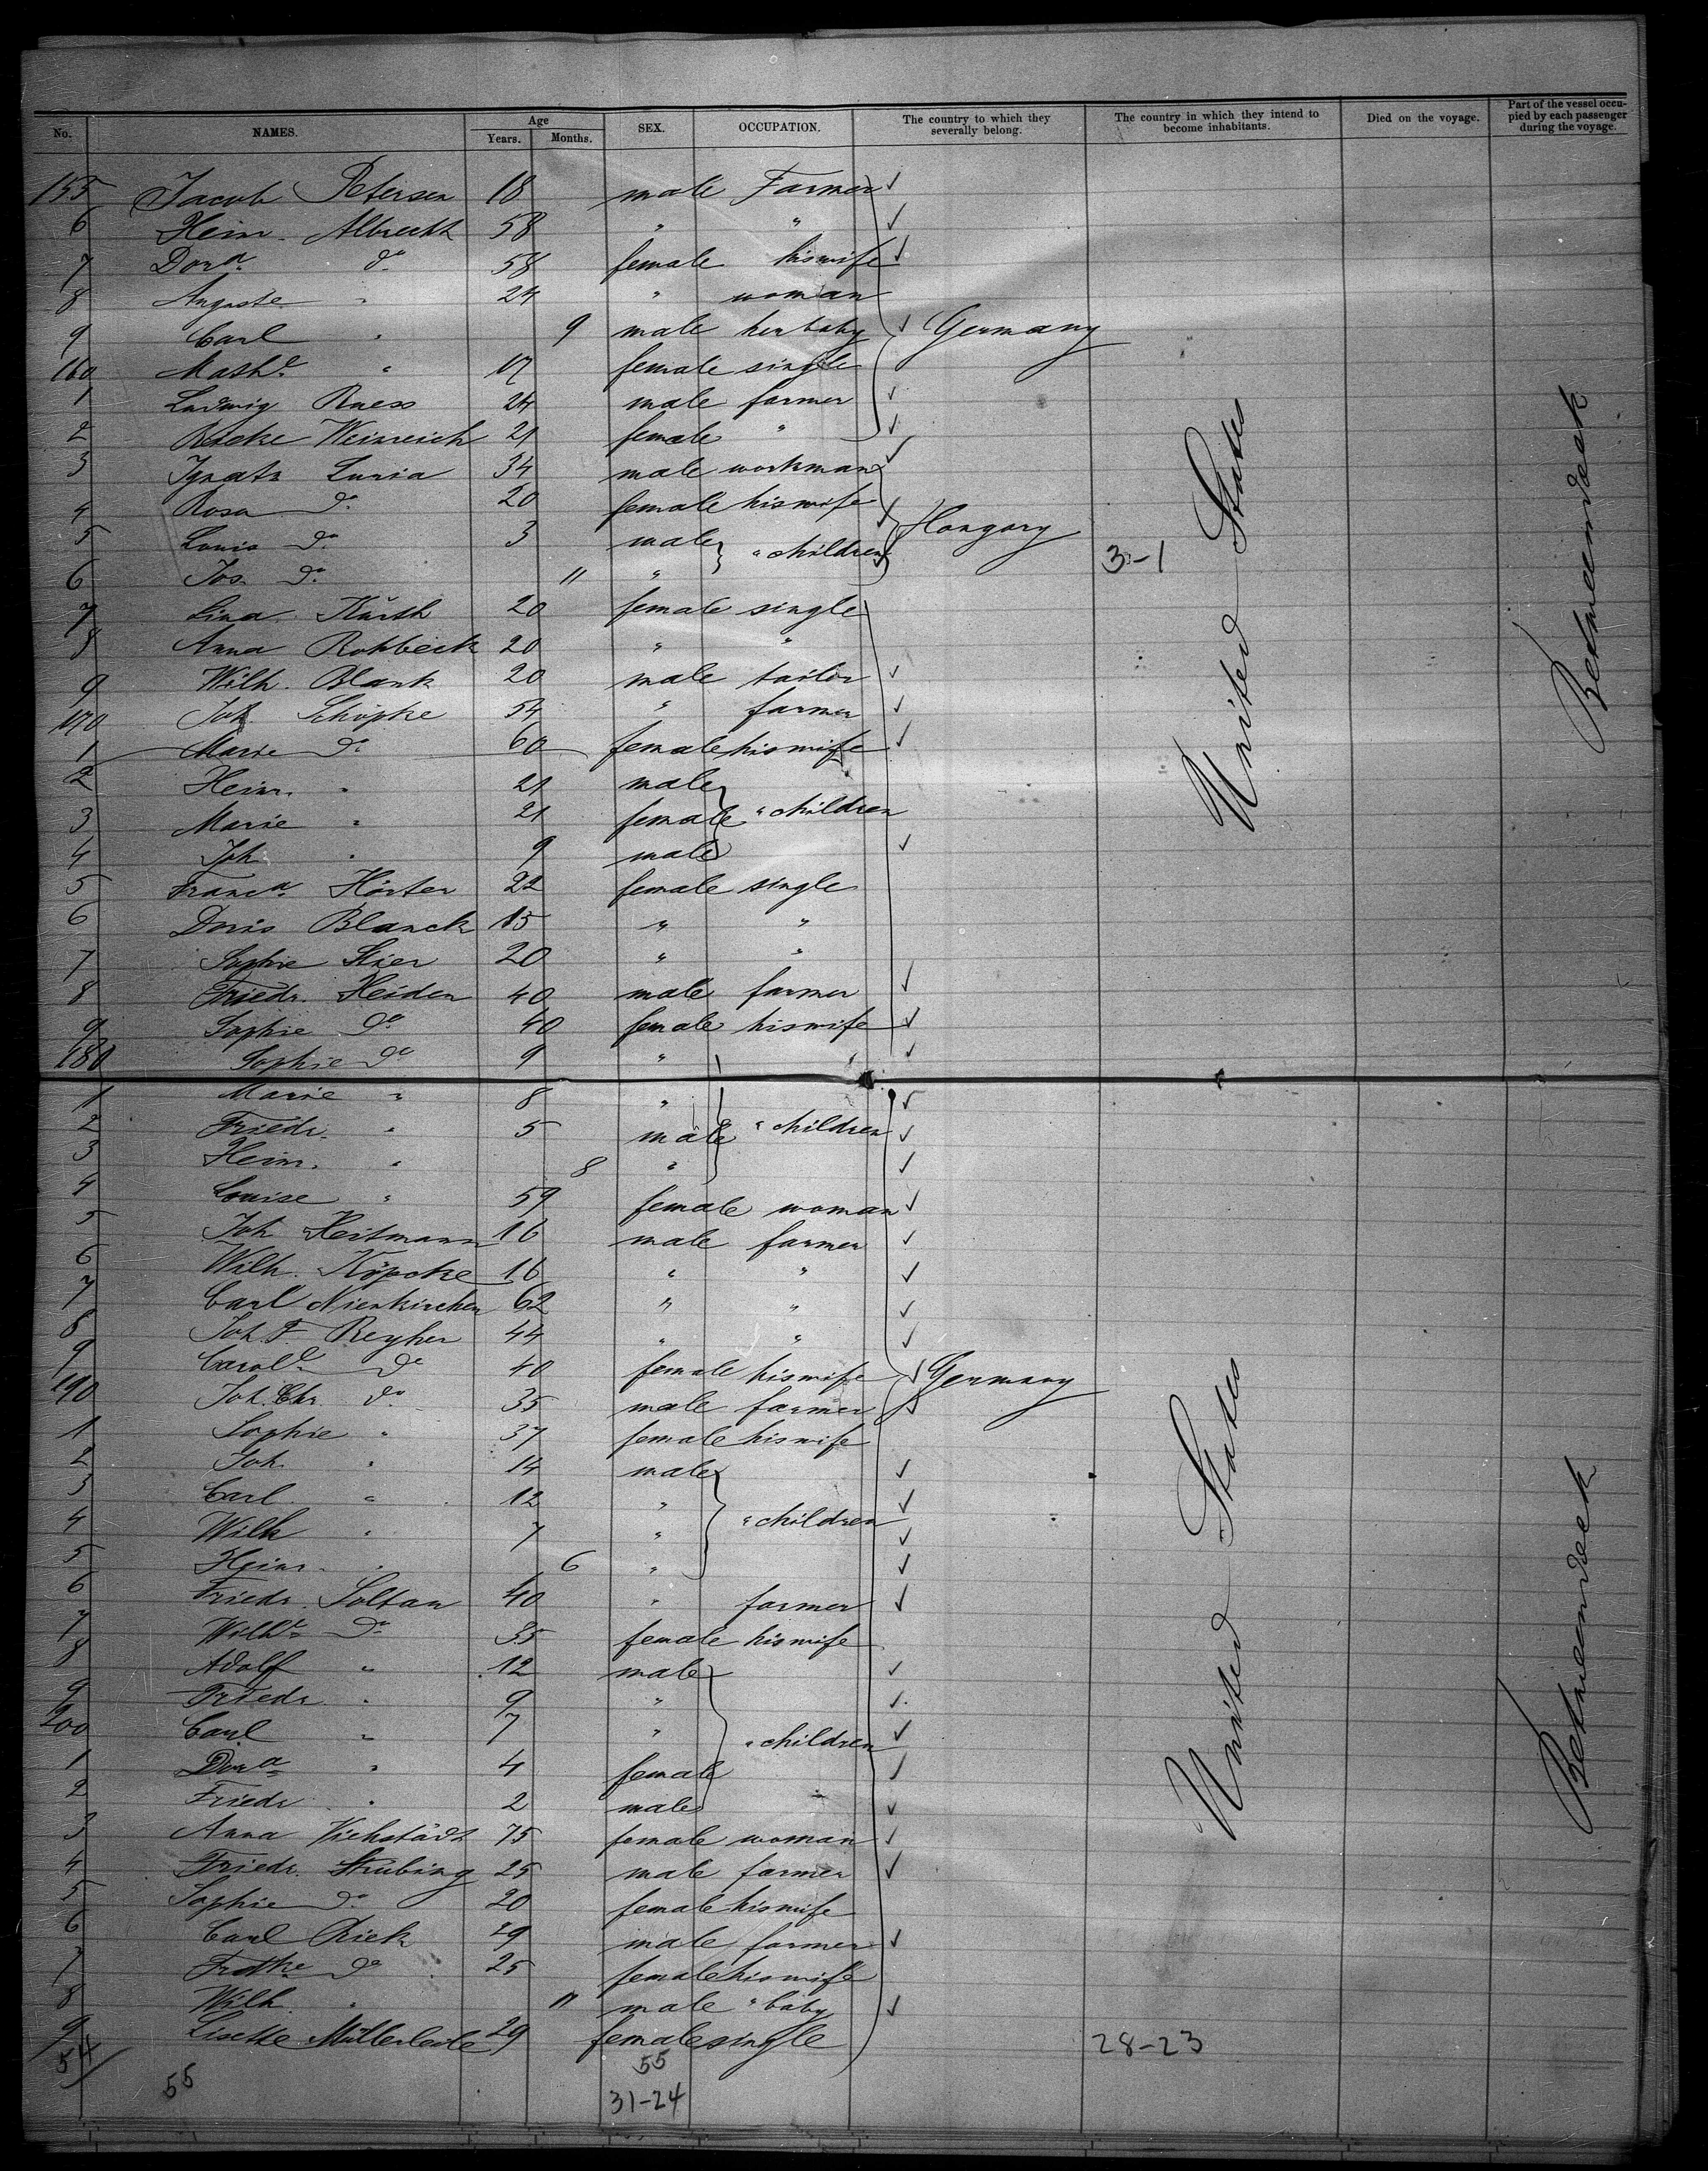 No. NAMES. Age Years. Months. SEX. OCCUPATION. The country to which they severally belong. The country in which they intend to become inhabitants. Died on the voyage. Part of the vessel occupied by each passenger during the voyage.
155 Jacob Petersen 18 male Farmer ✓
6 Heinr. Albrecht 58 " " ✓
7 Dora do 58 female his wife ✓
8 Auguste " 24 " woman
9 Carl " 9 male her baby ✓ Germany
160 Mathe " 17 female single
1 Ludwig Ruess 24 male farmer ✓
2 Weinreich 21 female " ✓
3 Ignatz Luria 34 male workman ✓
4 Rosa do 20 female his wife ✓ Hongary
5 Louis do 3 male " children ✓
6 Jos. do 11 " 3-1
7 Lina Kürth 20 female single
8 Anna Rohbeck 20 " "
9 Wilh. Blank 20 male tailor ✓
170 Joh. Schöpke 54 " farmer ✓
1 Marie do 60 female his wife ✓
2 Heinr. " 21 male
3 Marie " 21 female " children
4 Joh " 9 male ✓
5 Franca Hörter 22 female single
6 Doris Blanck 15 " "
7 Sophie Stier 20 " "
8 Friedr. Heiden 40 male farmer ✓
9 Sophie do 40 female his wife ✓
180 Sophie do 9 " ✓
1 Marie " 8 " ✓
2 Friedr. " 5 male " children ✓
3 Heinr. " 8 " ✓
4 Louise " 59 female woman ✓
5 Joh Heitmann 16 male farmer ✓
6 Wilh. Köpcke 16 " " ✓
7 Carl Nienkirchen 62 " " ✓
8 Joh. F. Reyher 44 " " ✓
9 Carole do 40 female his wife ✓ Germany
190 Joh. Chr. do 35 male farmer ✓
1 Sophie " 37 female his wife
2 Joh. " 14 male ✓
3 Carl " 12 " ✓
4 Wilh " 7 " " children ✓
5 Heinr. " 6 " ✓
6 Friedr. Soltau 40 " farmer ✓
7 Wilhe do 35 female his wife
8 Adolf " 12 male ✓
9 Friedr " 9 " ✓
200 Carl " 7 " " children ✓
1 Dora " 4 female ✓
2 Friedr " 2 male ✓
3 Anna Vichstädt 75 female woman ✓
4 Friedr. Strübing 25 male farmer ✓
5 Sophie do 20 female his wife
6 Carl Riek 29 male farmer ✓
7 do 25 female his wife
8 Wilh. " 11 male " baby ✓
9 Lisette Müllerleile 29 female single 28-23
54 55 55
31-24
United States
Betweendeck
United States
Betweendeck